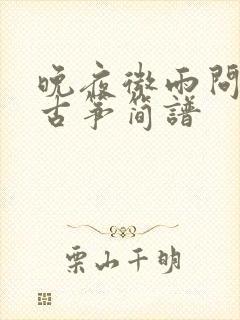 晚夜微雨問
古筝简譜
栗山千明